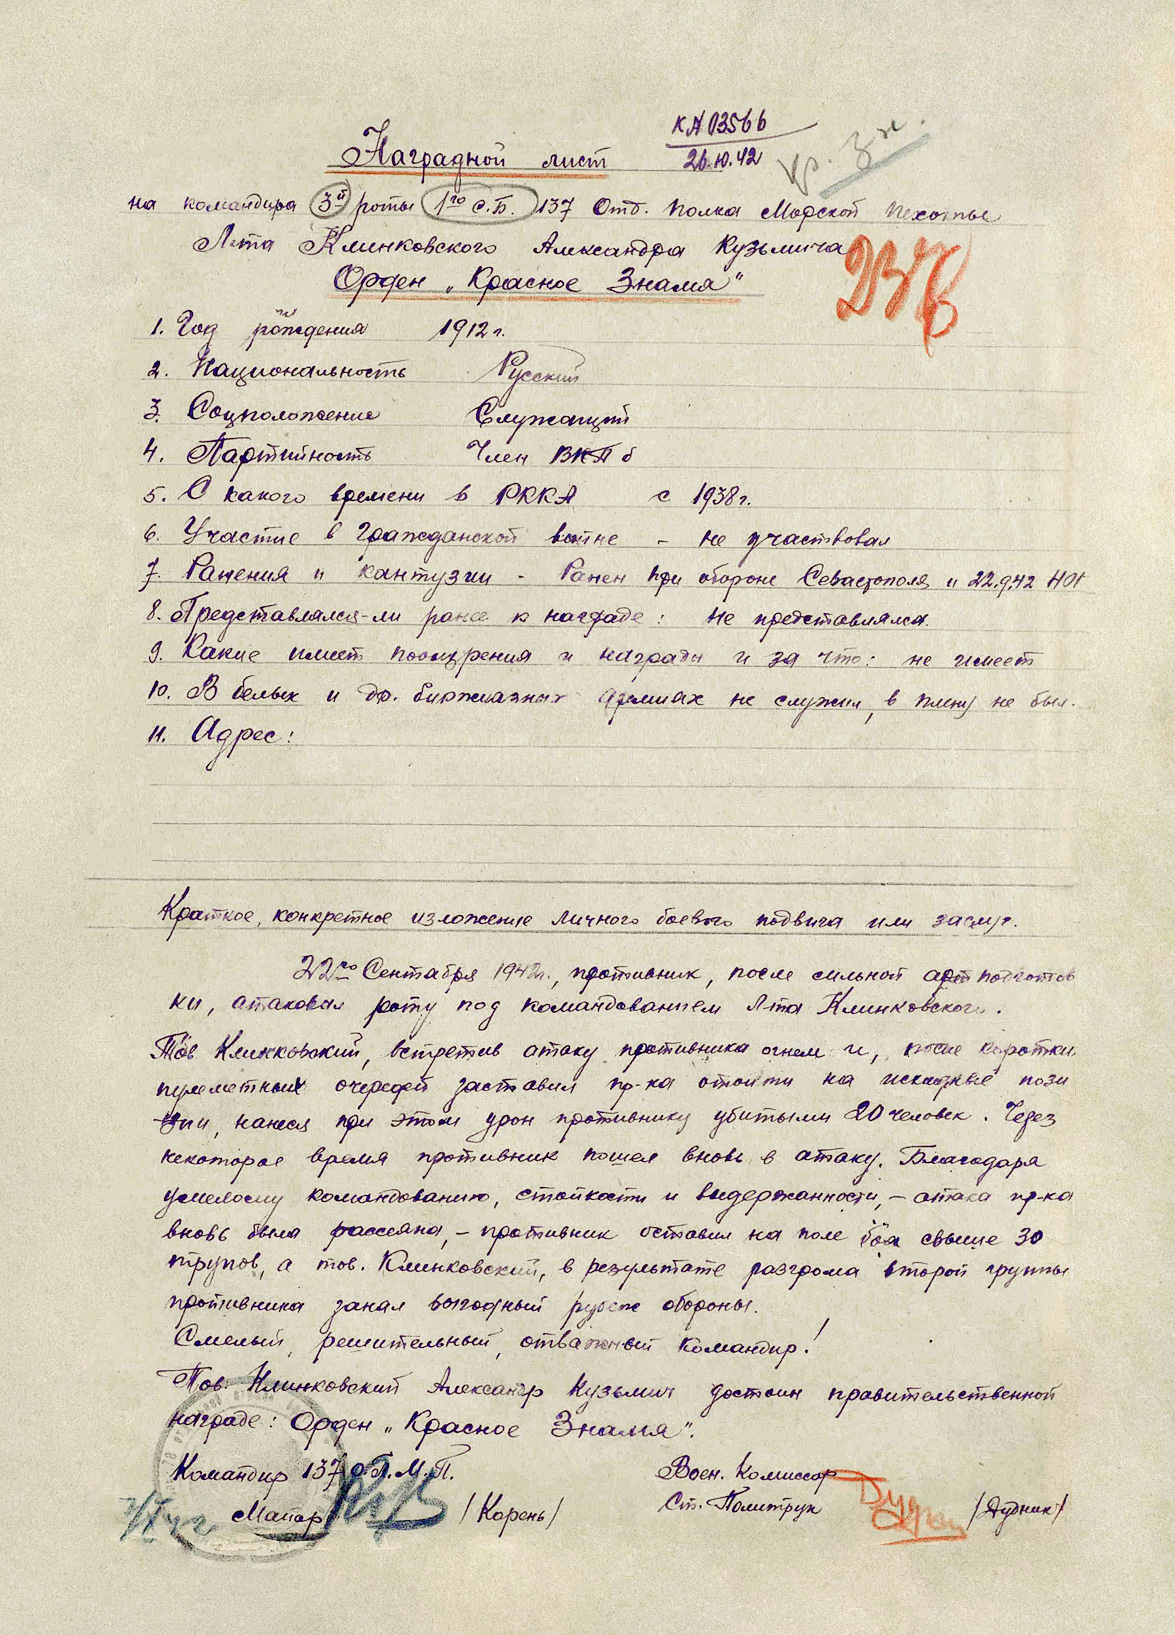 КА 0356 б
26.10.42
Кр. Зн.
Наградной лист
на командира 3й роты 1го С.Б. 137 Отд. полка Морской пехоты
Л-та Клинковского Александра Кузьмича
Орден „Красное Знамя"
1. Год рождения 1912 г.
2. Национальность Русский
3. Соцположение Служащий
4. Партийность Член ВКП б
5. С какого времени в РККА с 1938 г.
6. Участие в Гражданской войне – не участвовал
7. Ранения и кантузии - Ранен при обороне Севастополя и 22.9.42
8. Представлялся-ли ранее к награде: не представлялся.
9. Какие имеет поощрения и награды и за что: не имеет
10. В белых и др. буржуазных армиях не служил, в плену не был.
11. Адрес:
Краткое, конкретное изложение личного боевого подвига или заслуг.
22го Сентября 1942 г., противник, после сильной арт подготов
ки, атаковал роту под командованием Л-та Клинковского.
Тов Клинковский, встретив атаку противника огнем и, после коротких
пулеметных очередей заставил пр-ка отойти на исходные пози
ции, нанеся при этом урон противнику убитыми 20 человек. Через
некоторое время противник пошел вновь в атаку. Благодаря
умелому командованию, стойкости и выдержанности, – атака пр-ка
вновь была рассеяна, – противник оставил на поле боя свыше 30
трупов, а тов. Клинковский, в результате разгрома второй группы
противника занял выгодный рубеж обороны.
Смелый, решительный, отважный командир!
Тов. Клинковский Александр Кузьмич достоин правительственной
награде: Орден „Красное Знамя".
Командир 137 О.П.М.П. Воен. Комиссар
Майор /Корень/ Ст. Политрук /Дудник/